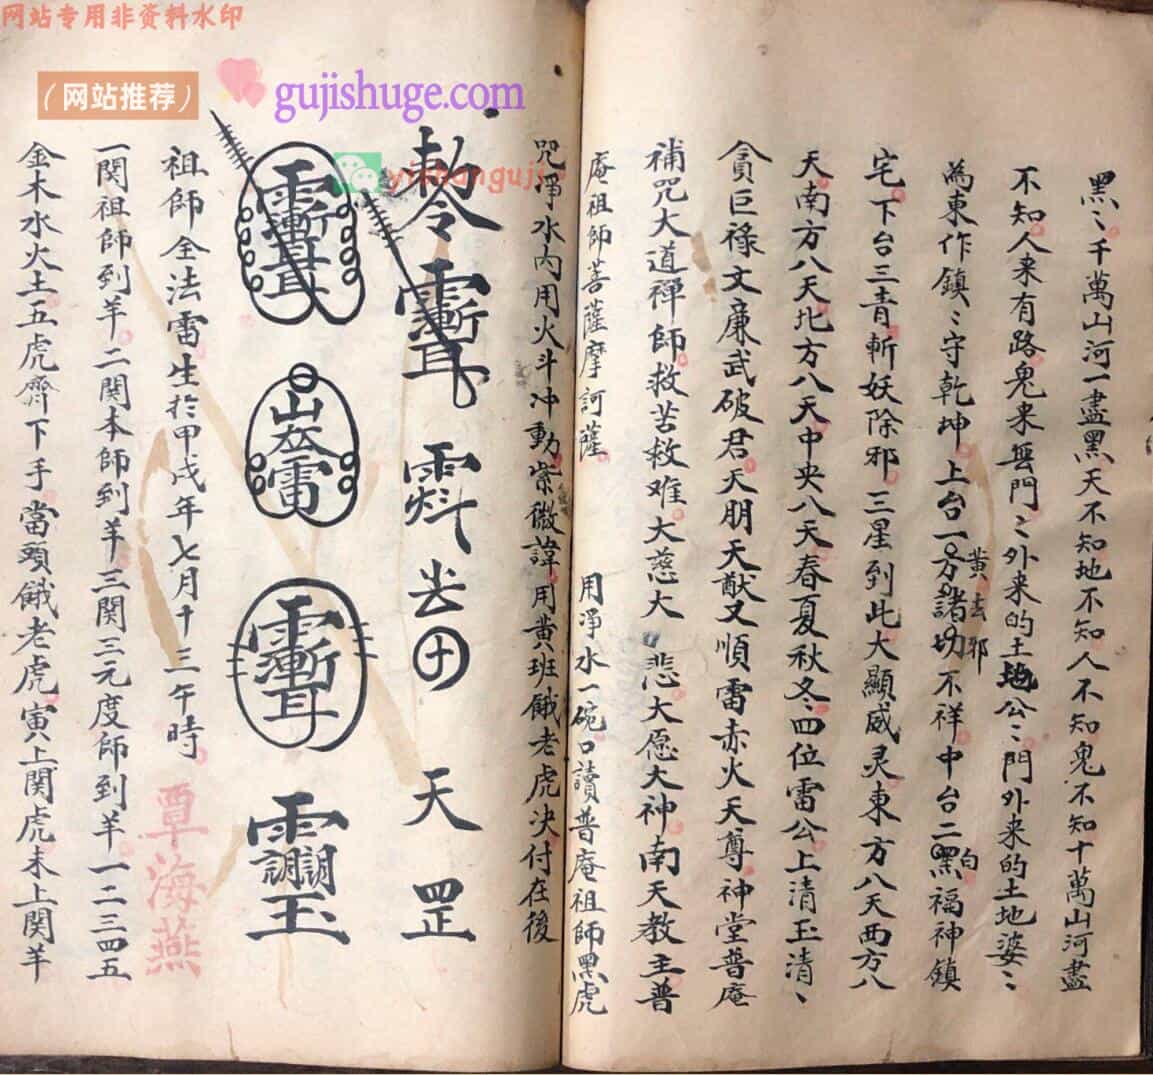 网站专用非资料水印
（网站推荐）
gujishuge.com
yishanguji
黑〻千萬山河一盡黑天不知地不知人不知鬼不知十萬山河盡
不知人来有路鬼来無門〻外来的土地公〻門外来的土地婆〻
為東作鎮〻守乾坤上台一方諸切不祥中台二黑福神鎮
黄去邪
白
宅下台三青斬妖除邪三星到此大顯威灵東方八天西方八
天南方八天北方八天中央八天春夏秋冬四位雷公上清玉清〻
貪巨祿文廉武破君天朋天猷又順雷赤火天尊神堂普庵
補咒大道禅師救苦救难大慈大悲大愿大神南天教主普
庵祖師菩薩摩訶薩 用凈水一碗口讀普庵祖師黑虎
咒凈水内用火斗冲動紫微諱用黄班餓老虎决付在後
天罡
玉
祖師全法雷生於甲戌年七月十三午時
覃海燕
一関祖師到羊二関本師到羊三関三元度師到羊一二三四五
金木水火土五虎齊下手當頭餓老虎寅上関虎未上関羊